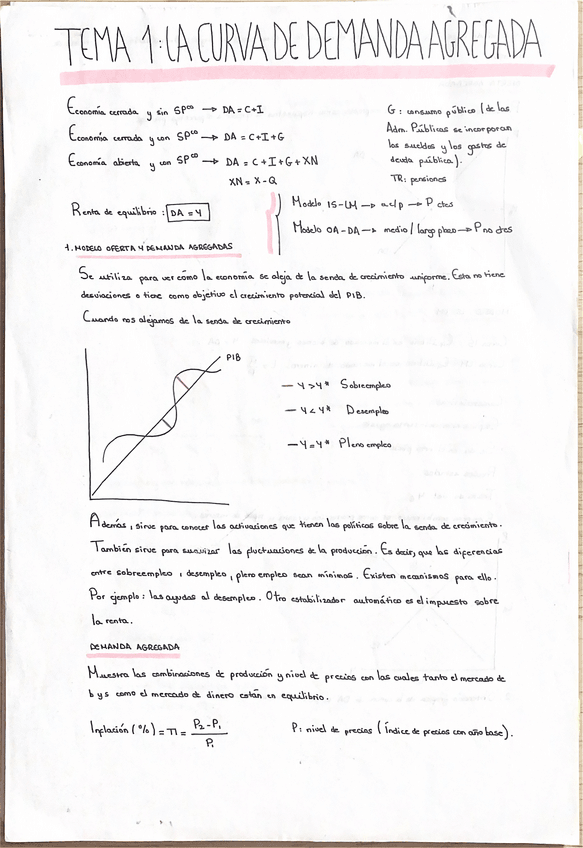 TEMA 1: LA CURVA DE DEMANDA AGREGADA
Economía cerrada y sin SPco → DA = C+I
Economía cerrada y con SPco → DA = C+I+G
Economía abierta y con SPco → DA = C+I+G+XN
XN = X-Q
G: consumo público (de las
Adm. Públicas se incorporan
los sueldos y los gastos de
deuda pública).
TR: pensiones
Renta de equilibrio: DA = Y
Modelo IS-LM → a c/p → P ctes
Modelo OA-DA → medio/largo plazo → P no ctes
1. MODELO OFERTA Y DEMANDA AGREGADAS
Se utiliza para ver cómo la economía se aleja de la senda de crecimiento uniforme. Esta no tiene
desviaciones o tiene como objetivo el crecimiento potencial del PIB.
Cuando nos alejamos de la senda de crecimiento
PIB
— Y > Y* Sobreempleo
— Y < Y* Desempleo
— Y = Y* Pleno empleo
Además, sirve para conocer las activaciones que tienen las políticas sobre la senda de crecimiento.
También sirve para suavizar las fluctuaciones de la producción. Es decir, que las diferencias
entre sobreempleo, desempleo, pleno empleo sean mínimas. Existen mecanismos para ello.
Por ejemplo: las ayudas al desempleo. Otro estabilizador automático es el impuesto sobre
la renta.
DEMANDA AGREGADA
Muestra las combinaciones de producción y nivel de precios con las cuales tanto el mercado de
b y s como el mercado de dinero están en equilibrio.
Inflación (%) = π = P2 - P1 / P1
P: nivel de precios (índice de precios con año base).